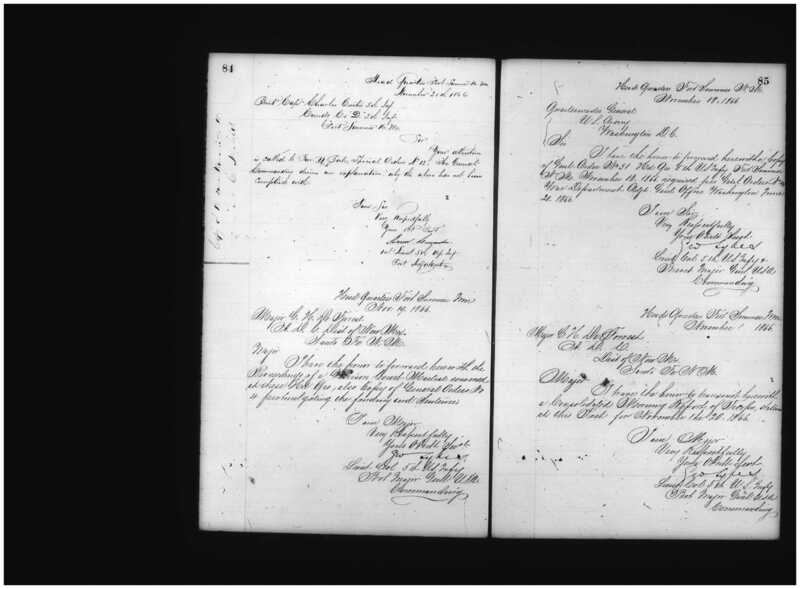 84
Head Quarters Fort Sumner N. M.
November 21st 1866
Bvt. Capt. Charles Curtis 5th Inf.
Comdg Co. D. 5th Inf.
Fort Sumner N. M.
Sir
Your attention
is called to Par. Special Order No
Commanding desires an explanation why the same has not been
complied with.
I am Sir
Very Respectfully
Your Obt. Servt.
1st Lieut 5th U.S. Inf.
Post Adjutant
Head Quarters Fort Sumner N. M.
Nov. 19. 1866.
Major C. H. De Forrest.
A. A. G. Dist of New Mex.
Santa Fe N. M.
Major
I have the honor to forward herewith the
Proceedings of a Garrison Court Martial convened
at these Hd. Qrs, also Copy of General Orders No
promulgating the finding and Sentence
I am Major
Very Respectfully
Your Obedt. Servt.
Geo Sykes
Lieut. Col. 5th U.S. Infy
Bvt. Major Genl. U.S.A.
Commanding
85
Head Quarters Fort Sumner N. M.
November 19. 1866
Quartermaster General
U. S. Army
Washington D. C.
Sir
I have the honor to forward herewith a Copy
of Genl. Order No 31 Hd. Qrs 5th U.S. Infy Fort Sumner
N. M. November 19. 1866 required per Genl. Orders No
War Department Adjt. Genl. Office Washington June
21. 1866.
I am Sir
Very Respectfully
Your Obedt Servt.
Geo Sykes
Lieut. Col. 5th U.S. Infy &
Brevet Major Genl U.S.A.
Commanding
Head Quarters Fort Sumner N. M.
November 1866
Major C. H. De Forrest
A. A. G.
Dist of New Mex
Santa Fe N. M.
Major
I have the honor to transmit herewith
a Consolidated Morning Report of Troops, stationed
at this Post for November the 20. 1866.
I am Major
Very Respectfully
Your Obedt Servt
Geo Sykes
Lieut Col 5th U.S. Infy
Bvt. Major Genl. U.S.A.
Commanding